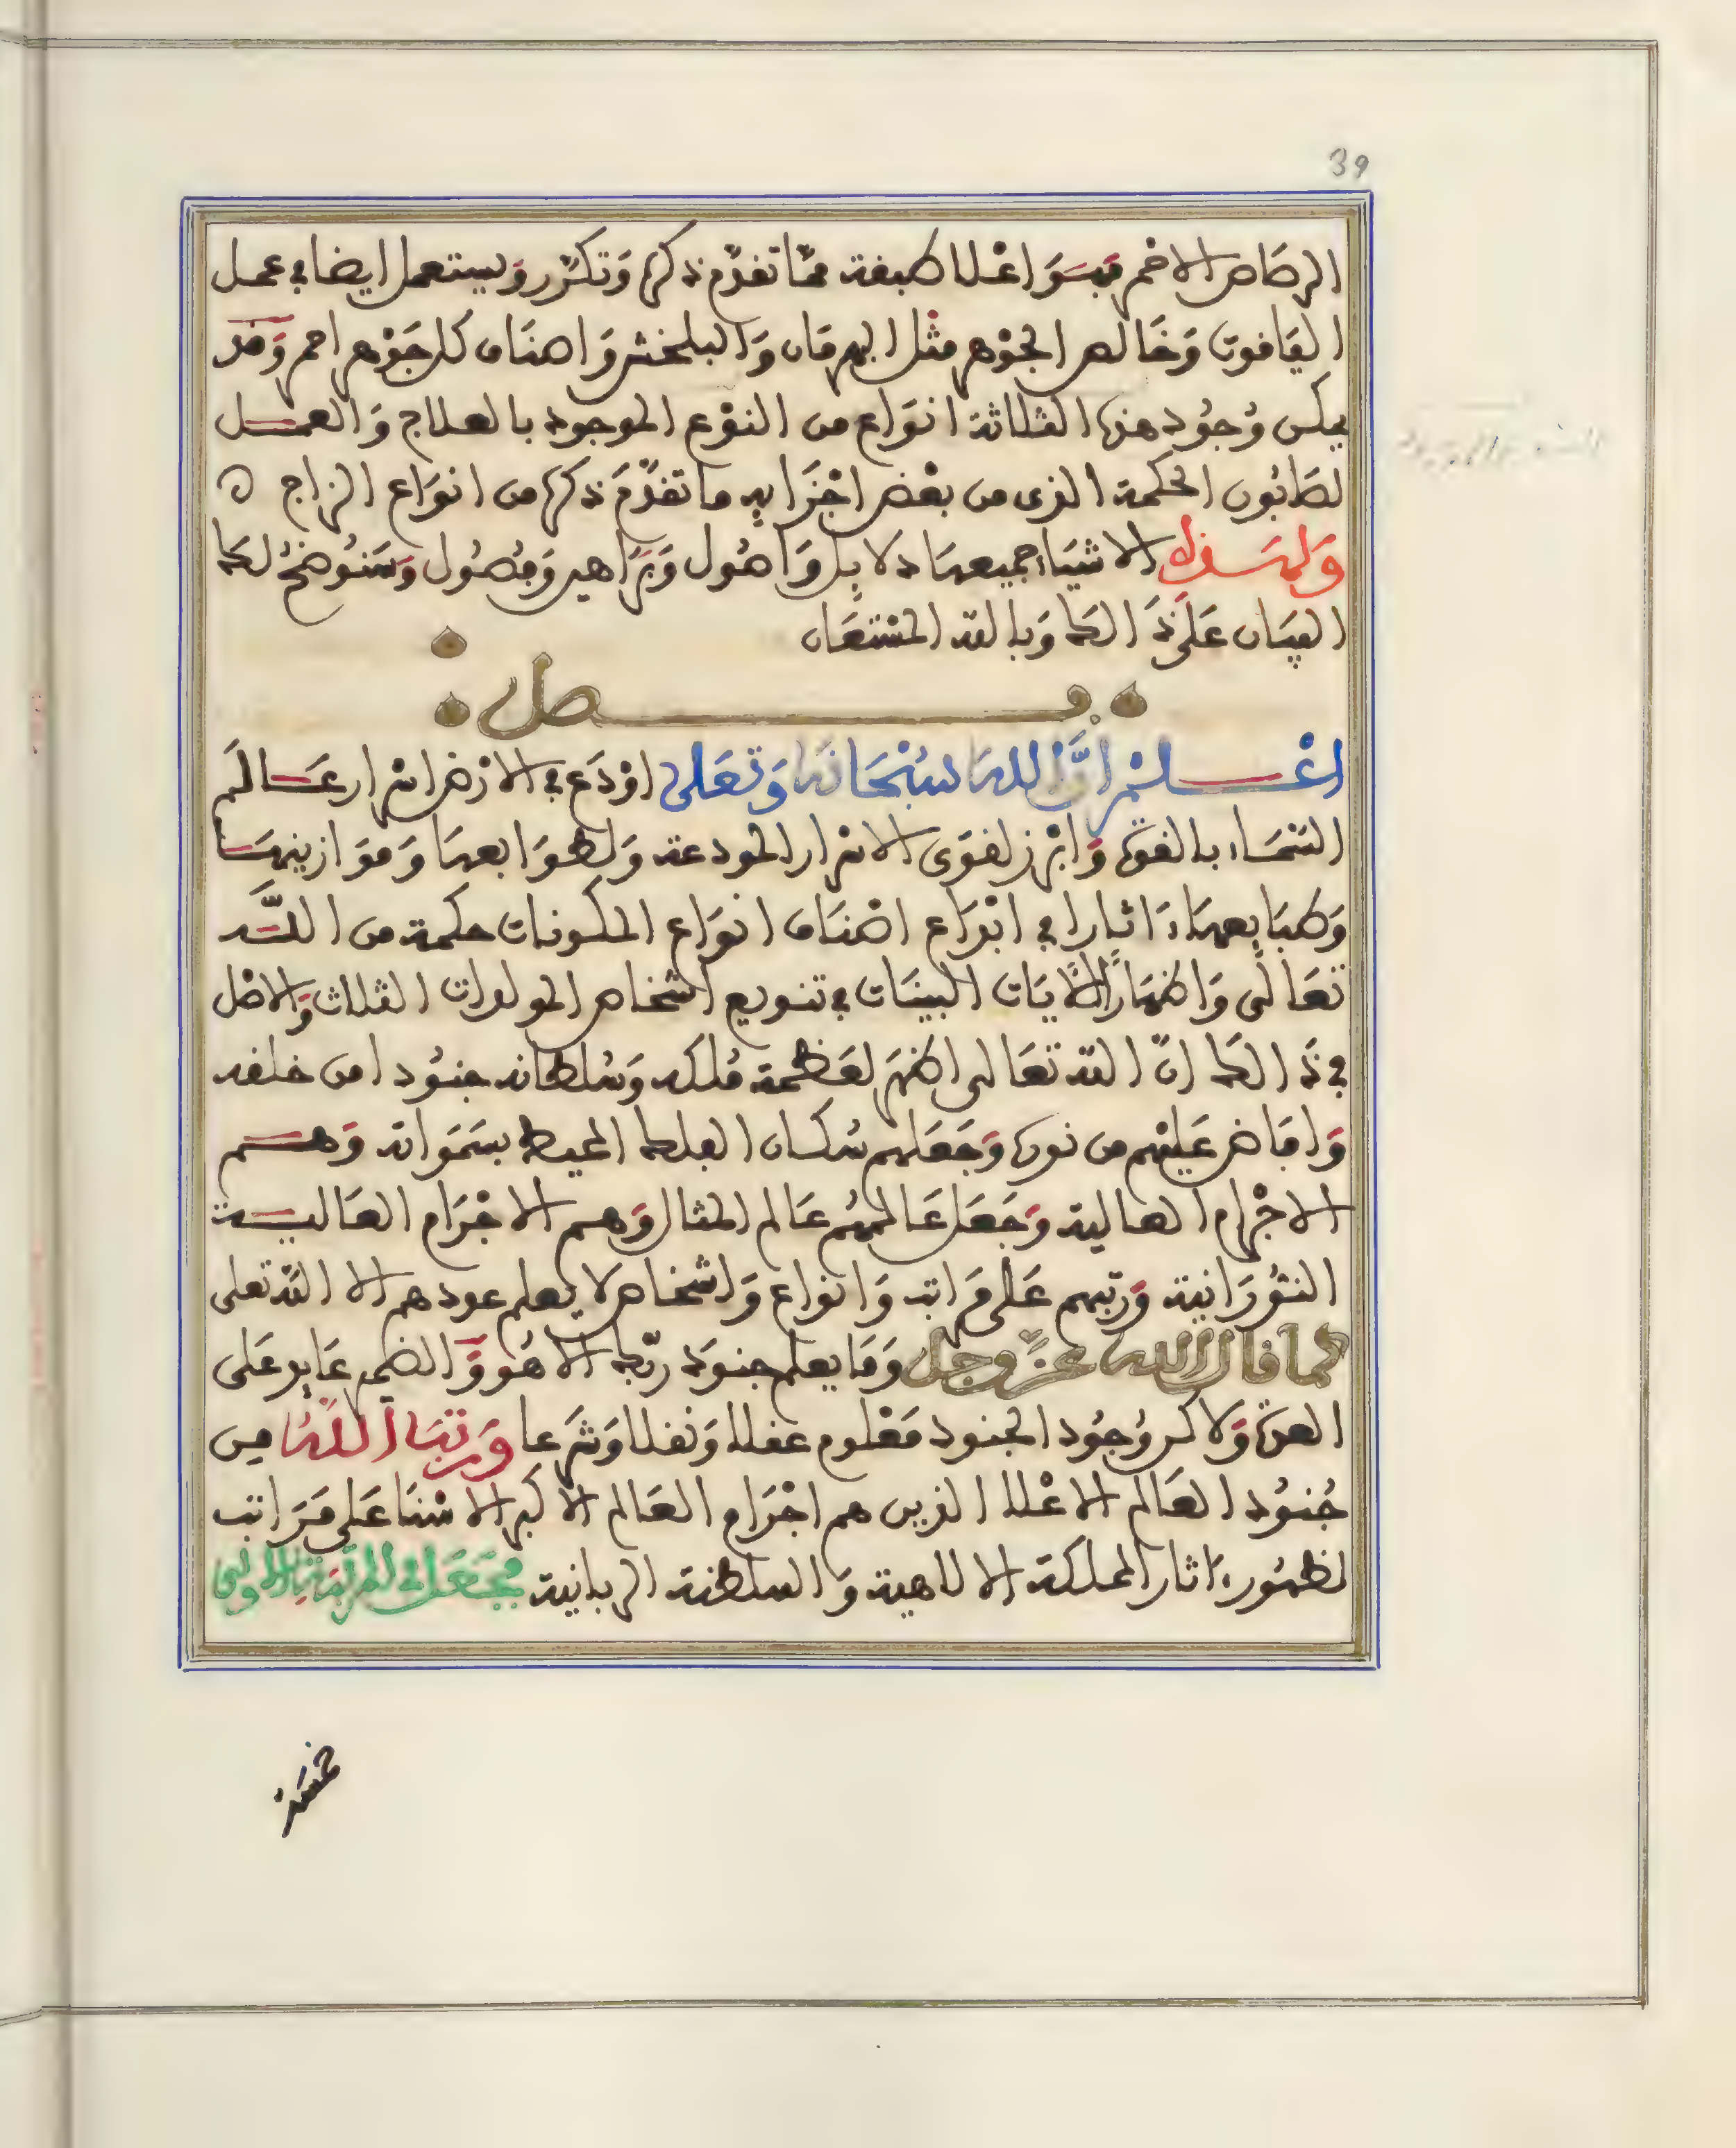 39
الرصاص الاحمر فهو اعلا طبقة مما تقدم ذكره وتكرر ويستعمل ايضا في عمل
الياقوت وخالص الجوهر مثل البهرمان والبلخش واصناف كل جوهر احمر وقد
يمكن وجود هذه الثلاثة انواع من النوع الموجود بالعلاج والعمل
لصابون الحكمة الذى من بعض اجزايه ما تقدم ذكره من انواع الزاج ه
ولهذه الاشياء جميعها دلايل واصول وبراهين وفصول وسنوضح لك
البيان على ذالك وبالله المستعان
فصل
اعلم ان الله سبحانه وتعلى اودع في الارض اسرار عالم
السماء بالقوة وابرز لقوى الاسرار المودعة ولطوابعها وموازينها
وطبايعها ءاثارا في ابداع اصناف انواع المكونات حكمة من الله
تعالى واظهارا للايات البينات في تنويع اشخاص المولدات الثلاث والاصل
في ذالك ان الله تعالى اظهر لعظمة ملكه وسلطانه جنودا من خلقه
وافاض عليهم من نوره وجعلهم سكان الفلك المحيط بسمواته وهم
الاجرام العالية وجعل عالمهم عالم المثال وهم الاجرام العالية
النورانية ورتبهم على مراتب وانواع واشخاص لا يعلم عددهم الا الله تعلى
كما قال الله عز وجل وما يعلم جنود ربك الا هو والضمير عايد على
العدة ولاكن وجود الجنود معلوم عقلا ونقلا وشرعا ورتب الله من
جنود العالم الاعلا الذين هم اجرام العالم الاكبر الاسنا على مراتب
لظهور ءاثار المملكة الالاهية والسلطنة الربانية فجعل في المرتبة الاولى
خمسة